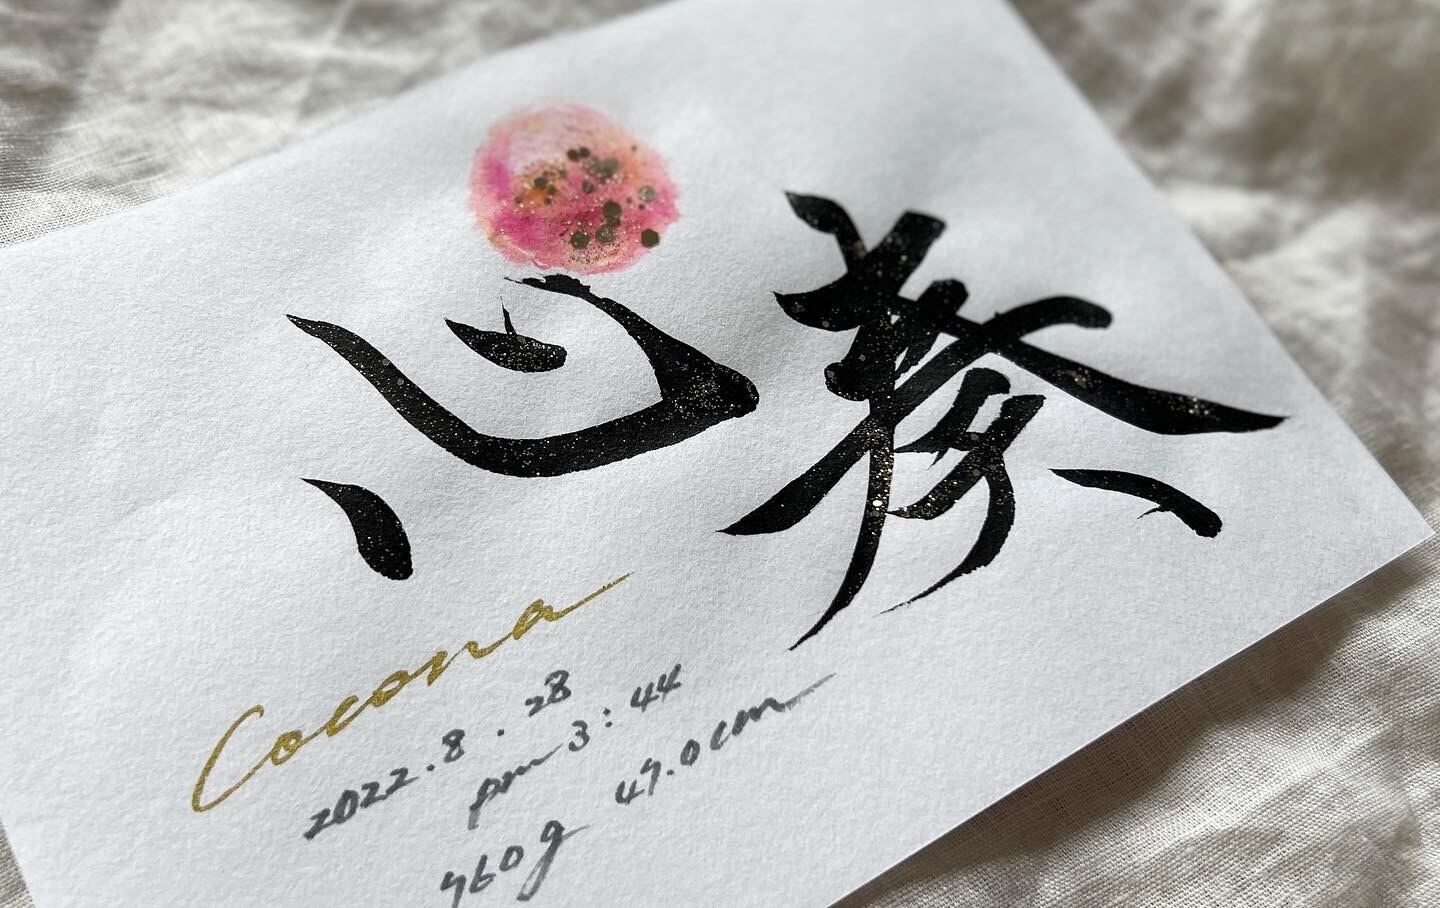 心奏
Cocona
2022.8.28
pm 3:44
47.0cm